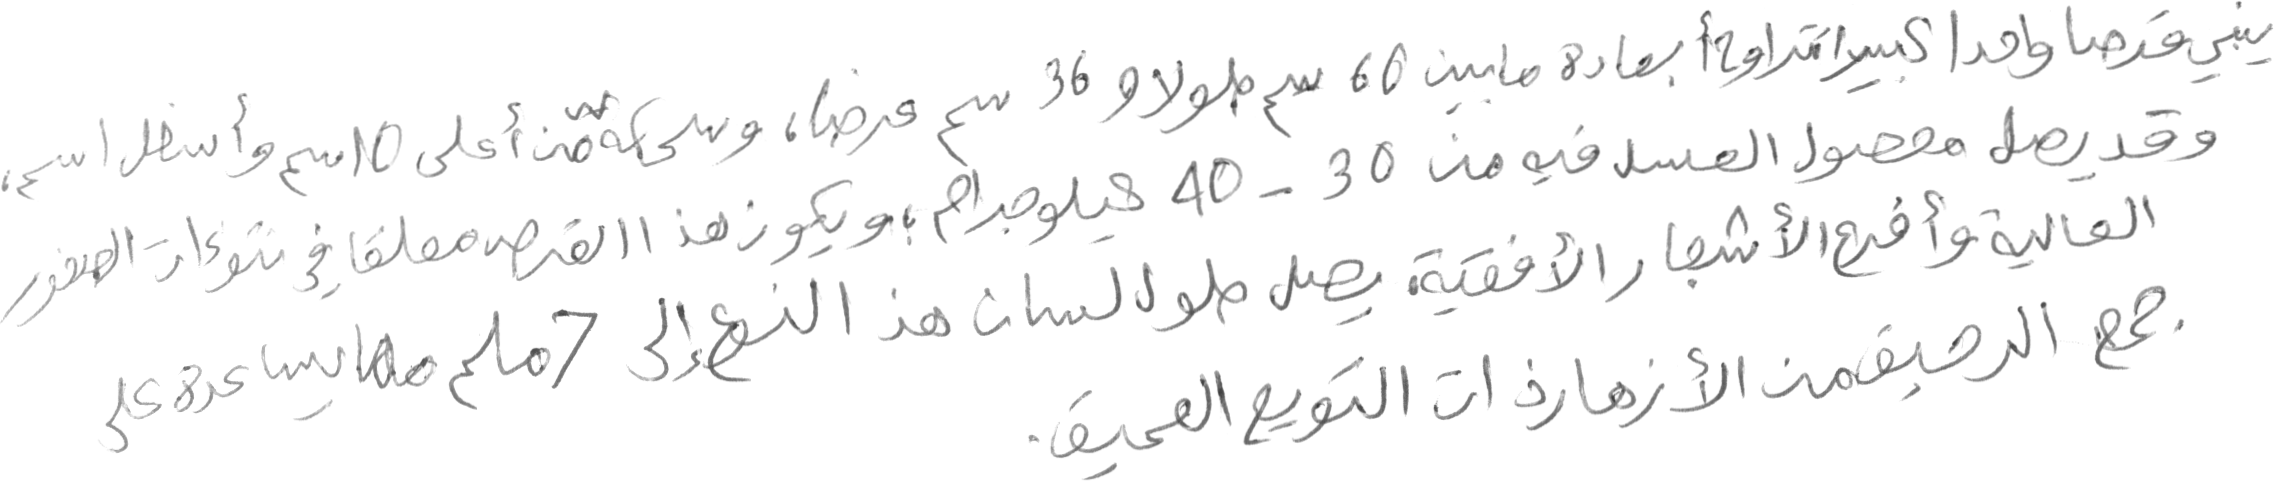 يبني قرصا واحدا كبيرا تتراوح أبعاده مابين 60 سم طولا و 36 سم عرضا، وسمكه من أعلى 10سم وأسفل 1سم،
وقد يصل محصول العسل فيه من 30 - 40 كيلوجرام، ويكون هذا القرص معلقا في نتوءات الصخور
العالية وأفرع الأشجار الأفقية، يصل طول لسان هذا النوع إلى 7ملم مما يساعده على
جمع الرحيق من الأزهار ذات التويج العميق.